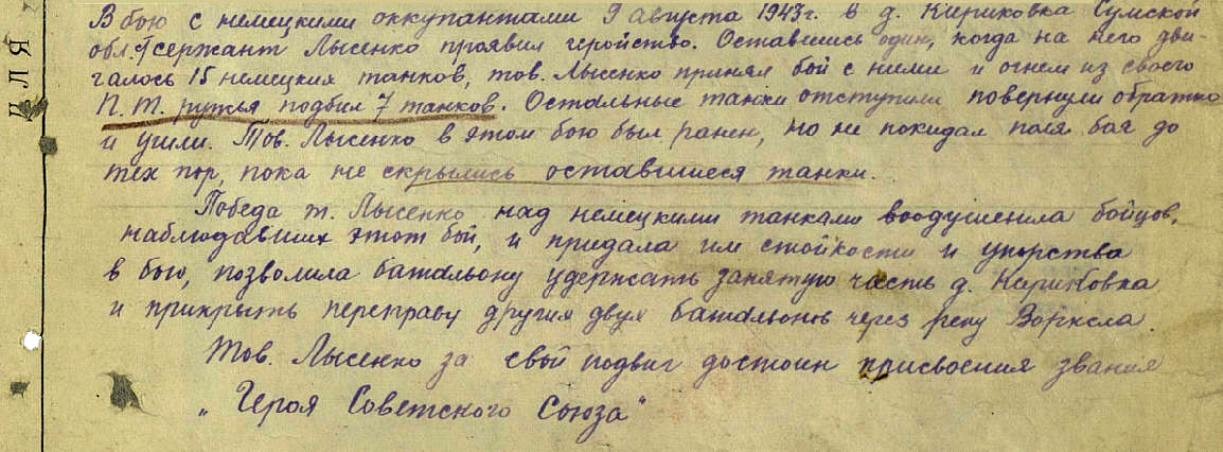 В бою с немецкими оккупантами 9 августа 1943г. в д. Кириковка Сумской
обл. сержант Лысенко проявил геройство. Оставшись один, когда на него дви-
галось 15 немецких танков, тов. Лысенко принял бой с ними и огнем из своего
П.Т. ружья подбил 7 танков. Остальные танки отступили повернули обратно
и ушли. Тов. Лысенко в этом бою был ранен, но не покидал поля боя до
тех пор, пока не скрылись оставшиеся танки.
Победа т. Лысенко над немецкими танками воодушевила бойцов,
наблюдавших этот бой, и придала им стойкости и упорства
в бою, позволила батальону удержать занятую часть д. Кириковка
и прикрыть переправу других двух батальонов через реку Ворксла.
Тов. Лысенко за свой подвиг достоин присвоения звания
„Героя Советского Союза"
ДЛЯ